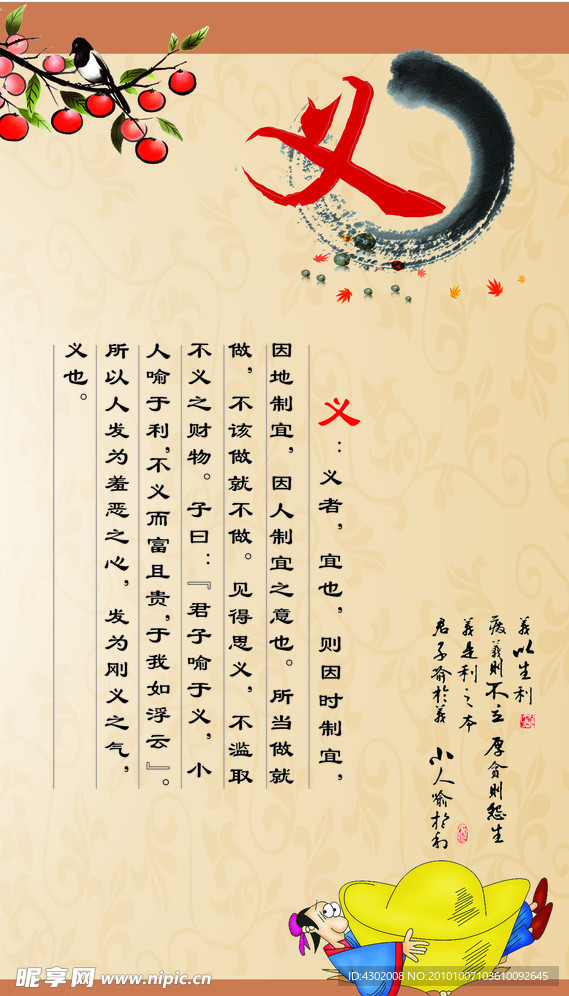 义
义：义者，宜也，则因时制宜，
因地制宜，因人制宜之意也。所当做就
做，不该做就不做。见得思义，不滥取
不义之财物。子曰：『君子喻于义，小
人喻于利，不义而富且贵，于我如浮云』。
所以人发为羞恶之心，发为刚义之气，
义也。
義以生利
廢義則不立 厚貪則怨生
義是利之本
君子喻於義 小人喻於利
昵享网 www.nipic.cn
ID:4302008 NO:20101007103610092645